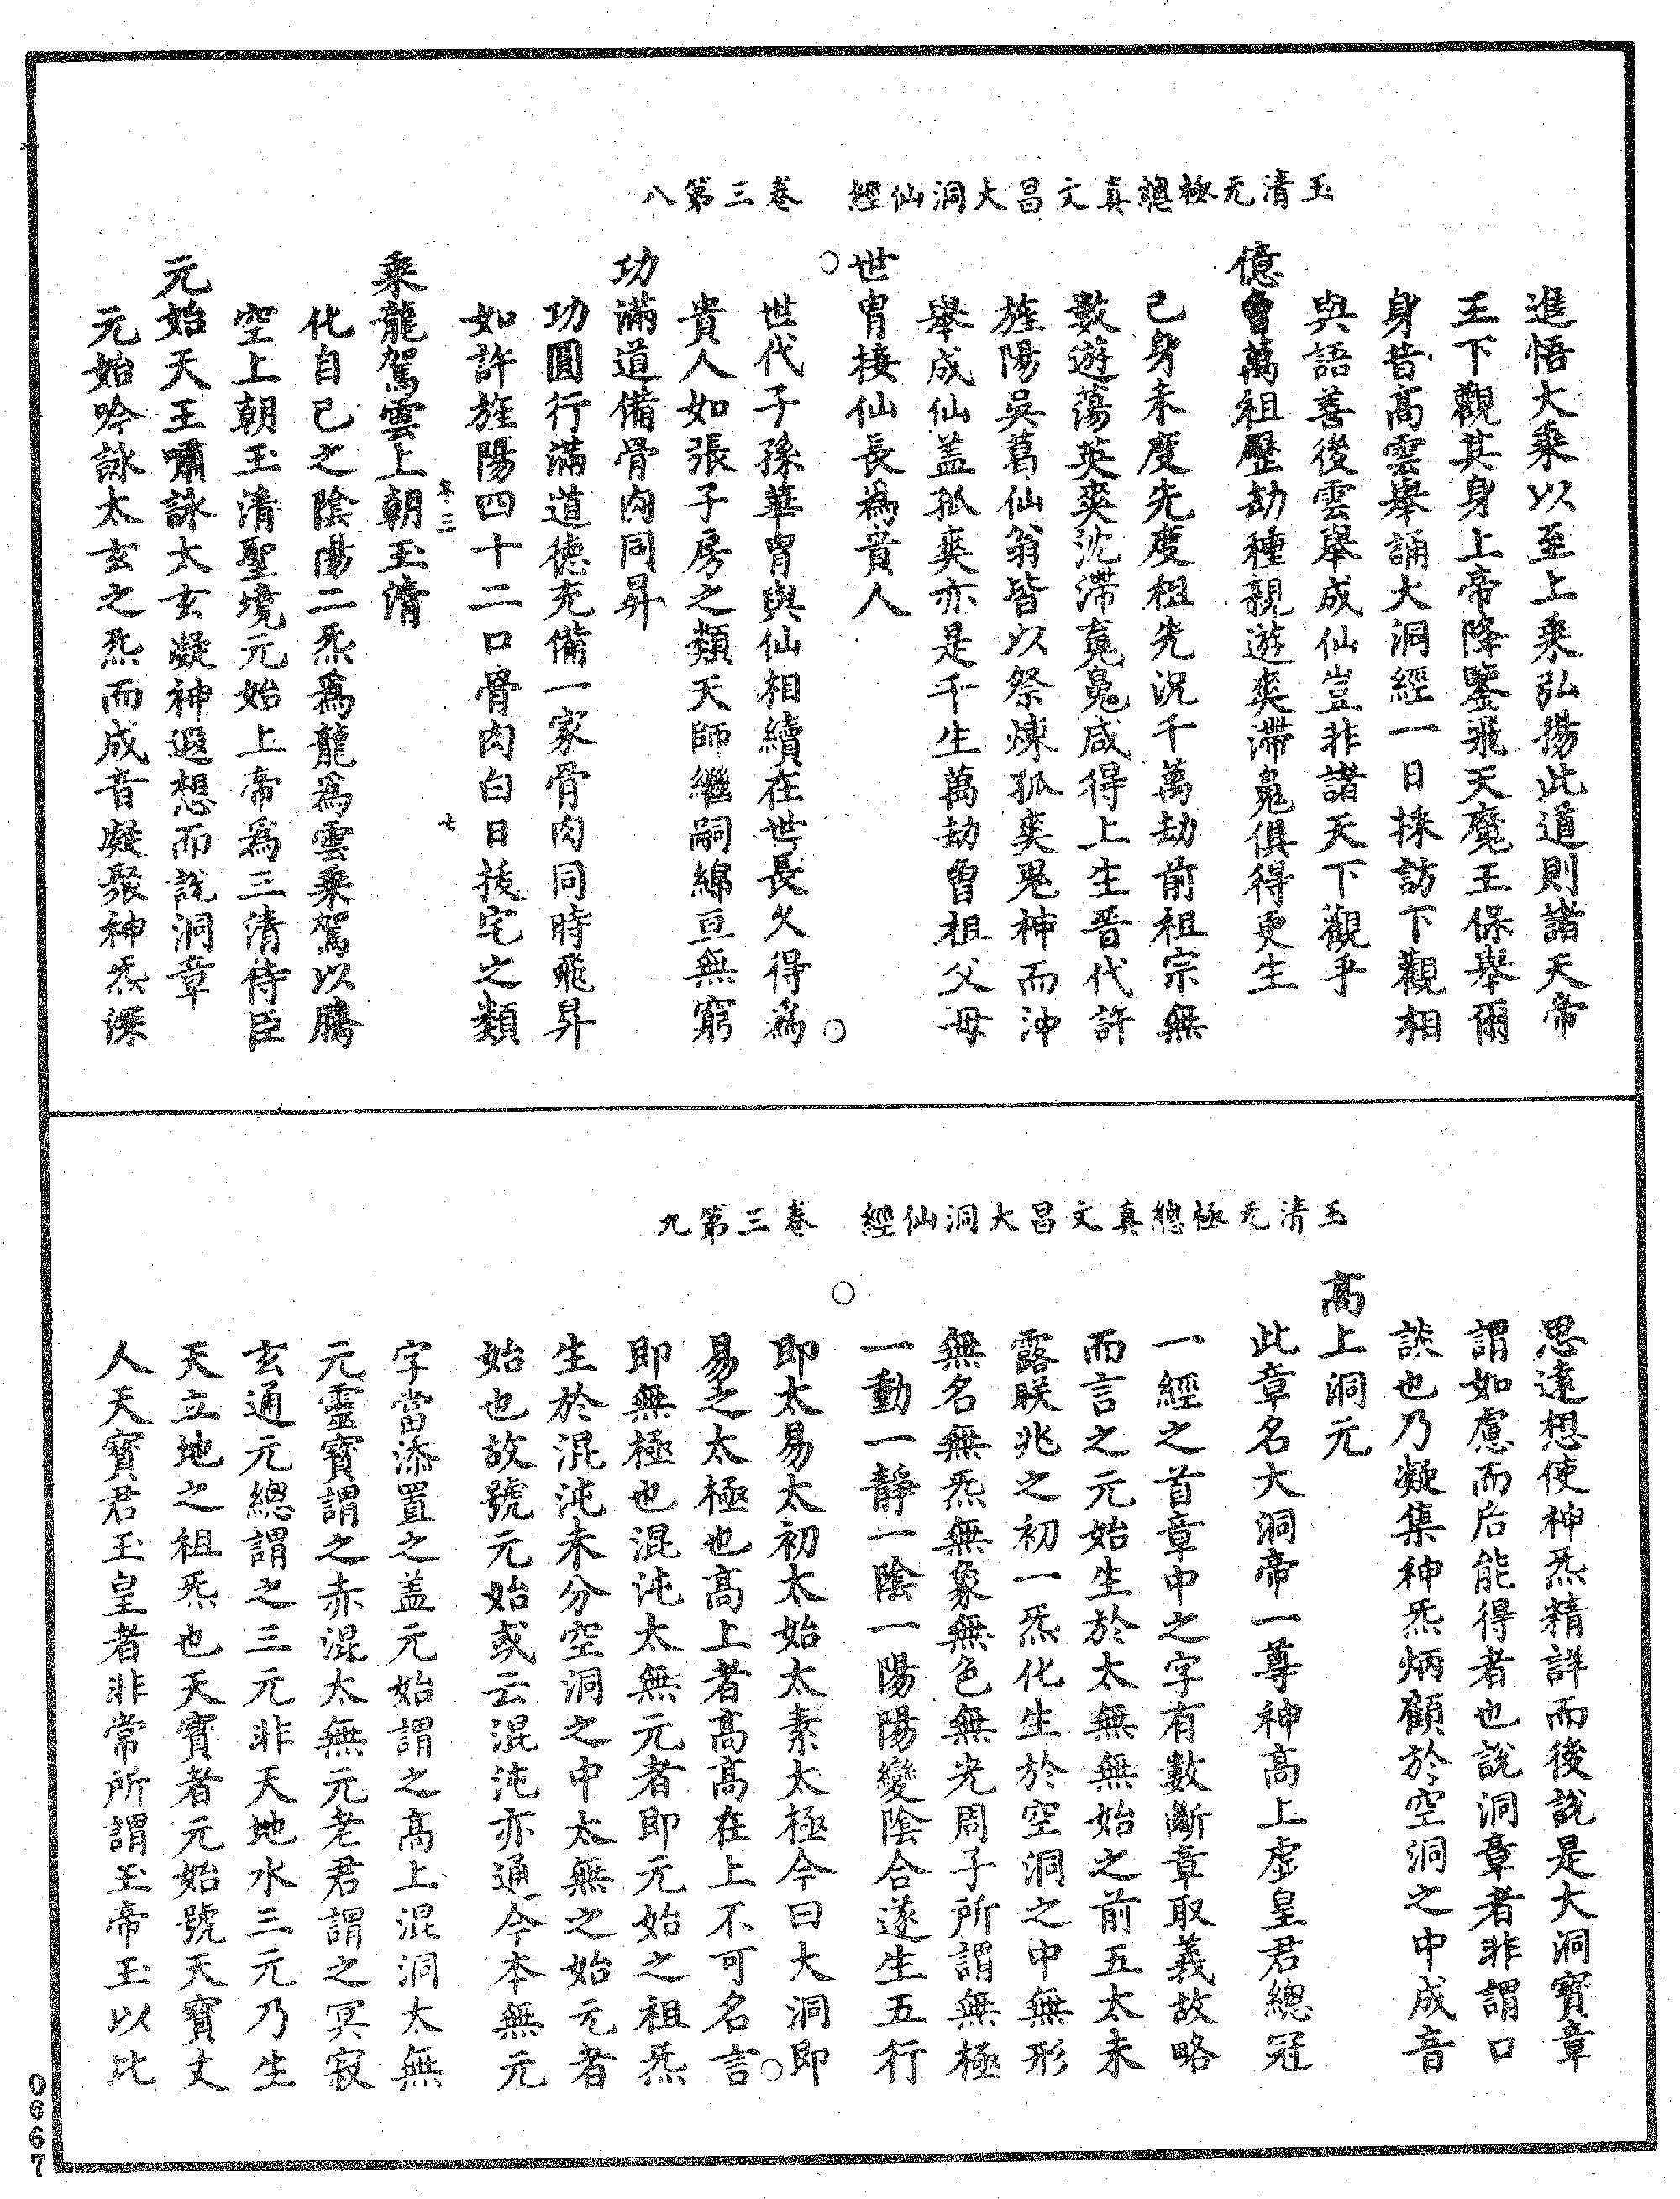 玉清元極總真文昌大洞仙經 卷三第八
進悟大乘以至上乘弘揚此道則諸天帝
王下觀其身上帝降鑒飛天魔王保舉爾
身昔高雲舉誦大洞經一日採訪下觀相
與語善後雲舉成仙豈非諸天下觀乎
億曾萬祖歷劫種親遊爽滯䰟俱得更生
己身未度先度祖先況千萬劫前祖宗無
數遊蕩英爽沈滯䰟䰟咸得上生晉代許
旌陽吳葛仙翁皆以祭煉孤爽鬼神而沖
舉成仙盖孤爽亦是千生萬劫曾祖父母
世胄接仙長為貴人
世代子孫華胄與仙相續在世長久得為
貴人如張子房之類天師繼嗣綿亘無窮
功滿道備骨肉同昇
功圓行滿道德充備一家骨肉同時飛昇
如許旌陽四十二口骨肉白日拔宅之類
卷三 七
乘龍駕雲上朝玉清
化自己之陰陽二炁為龍為雲乘駕以騰
空上朝玉清聖境元始上帝為三清侍臣
元始天王嘯詠太玄凝神遐想而說洞章
元始吟詠太玄之炁而成音凝聚神炁深
玉清元極總真文昌大洞仙經 卷三第九
思遠想使神炁精詳而後說是大洞寶章
謂如慮而后能得者也說洞章者非謂口
談也乃凝集神炁炳顧於空洞之中成音
高上洞元
此章名大洞帝一尊神高上虛皇君總冠
一經之首章中之字有數斷章取義故略
而言之元始生於太無無始之前五太未
露眹兆之初一炁化生於空洞之中無形
無名無炁無象無色無光周子所謂無極
一動一靜一陰一陽陽變陰合遂生五行
即太易太初太始太素太極今曰大洞即
易之太極也高上者高高在上不可名言
即無極也混沌太無元者即元始之祖炁
生於混沌未分空洞之中太無之始元者
始也故號元始或云混沌亦通今本無元
字當添置之盖元始謂之高上混洞太無
元靈寶謂之赤混太無元老君謂之冥寂
玄通元總謂之三元非天地水三元乃生
天立地之祖炁也天寶者元始號天寶丈
人天寶君玉皇者非常所謂玉帝玉以比
0667